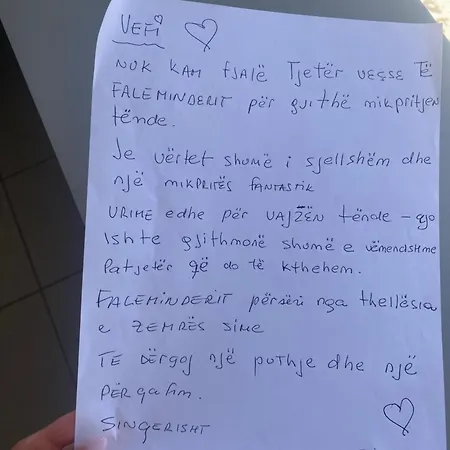 VEFI
NUK KAM FJALË TJETËR VEÇSE TË
FALEMINDERIT për gjithë mikpritjen
tënde.
Je vërtet shumë i sjellshëm dhe
një MIKPRITËS FANTASTIK
URIME edhe për VAJZËN tënde – ajo
ishte gjithmonë shumë e vëmendshme
Patjetër që do të kthehem.
FALEMINDERIT përsëri nga thellësia
e ZEMRËS SIME
TE DËRGOJ NJË puthje dhe NJË
PËRqafim.
SINQERISHT